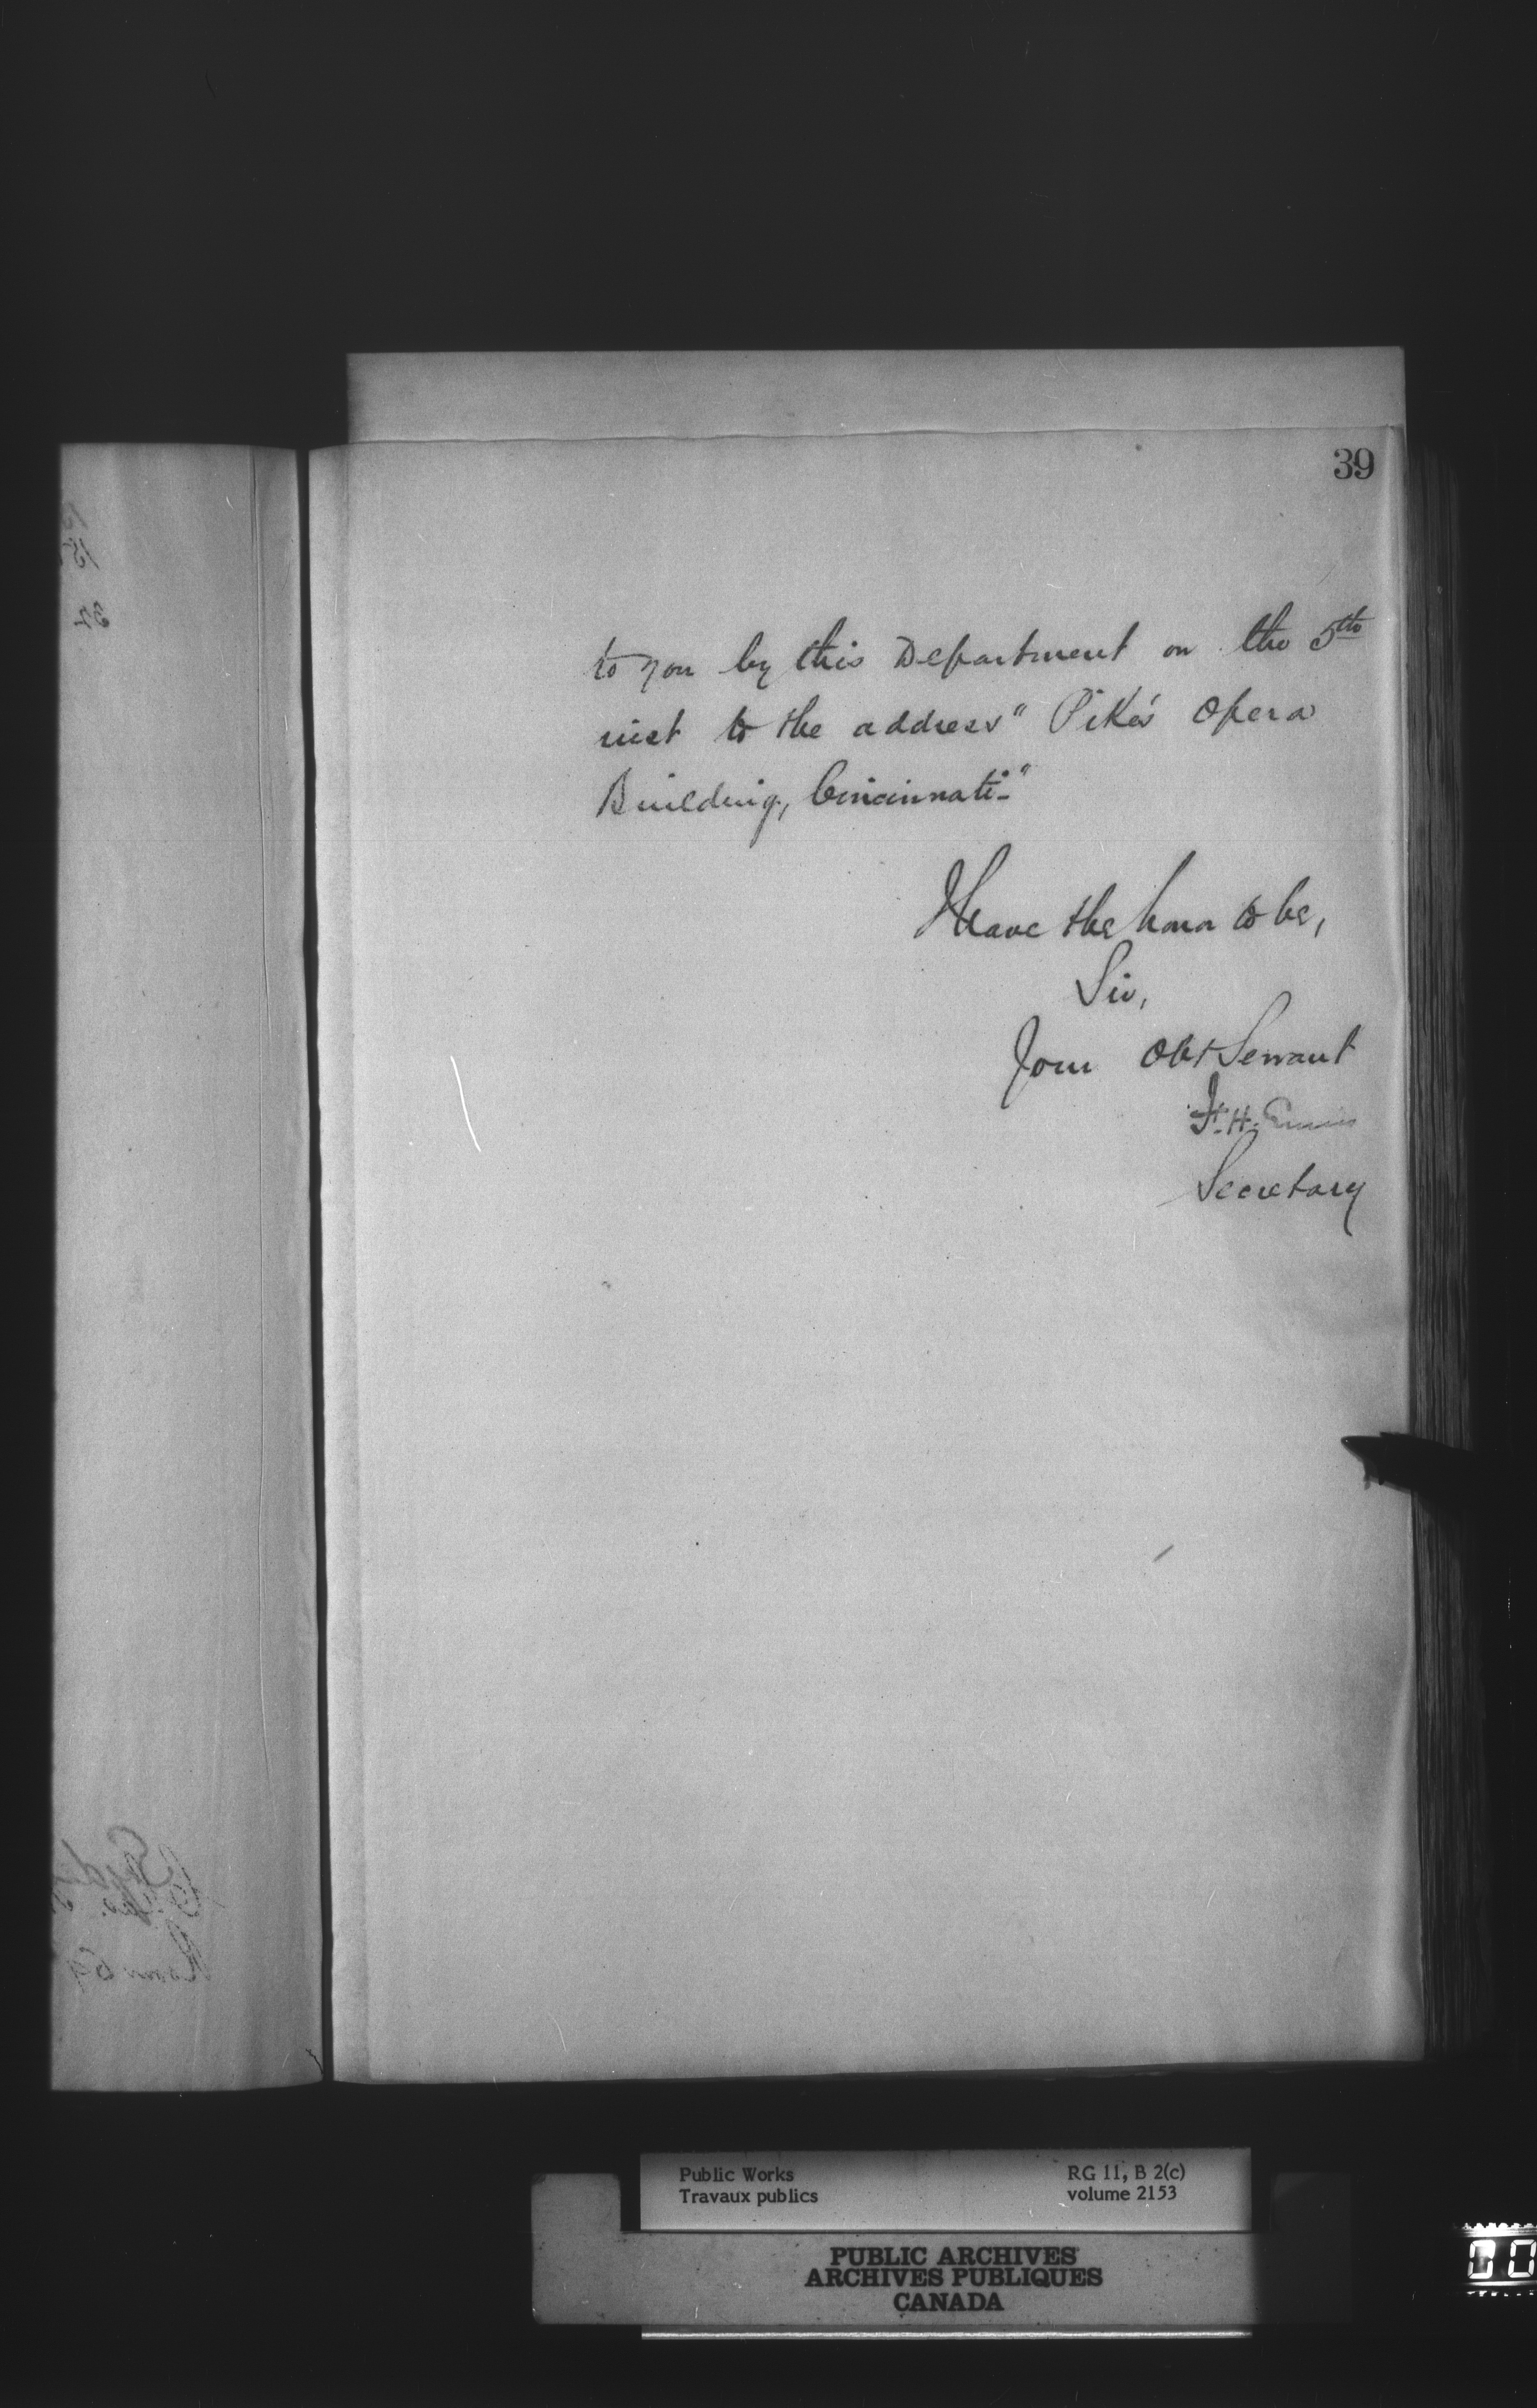 39
to you by this Department on the 5th
inst to the address "Pike's Opera
Building, Cincinnati-"
I have the honor to be,
Sir,
Your Obt Servant
F. H. Ennis
Secretary
Public Works
Travaux publics
RG 11, B 2(c)
volume 2153
PUBLIC ARCHIVES
ARCHIVES PUBLIQUES
CANADA
00